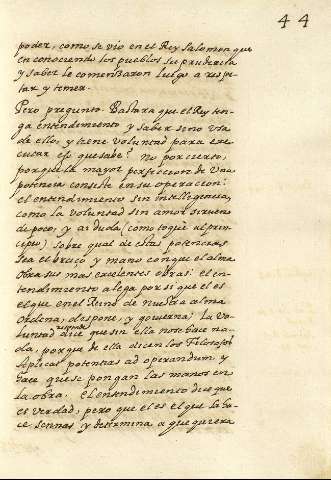 44
poder, como se vio en el Rey Salomon que
en conociendo los pueblos su prudencia
y saber le comenzaron luego a respe-
tar y temer.
Pero pregunto. Bastara que el Rey ten-
ga entendimiento y saber sino usa
de ello, y tiene voluntad para exe-
cutar eso que sabe? No por cierto,
porque la mayor perfeccion de una
potencia consiste en su operacion:
el entendimiento sin inteligencia,
como la voluntad sin amor sirven
de poco, y ai duda (como toque al prin-
cipio) sobre qual de estas potencias
sea el braço y mano con que el alma
obra sus mas excelentes obras: el en-
tendimiento alega por si que el es
el que en el Reino de nuestra alma
ordena, dispone, y govierna: La vo-
luntad responde que sin ella no se hace na-
da, porque de ella dicen los Filosofos
aplicas potentias ad operandum y
hace que se pongan las manos en
la obra. El entendimiento dice que
es verdad, pero que el es el que la ha-
ce y determina a que quiera